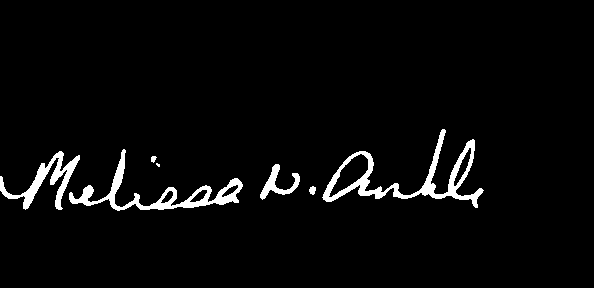 Melissa N. Ankle